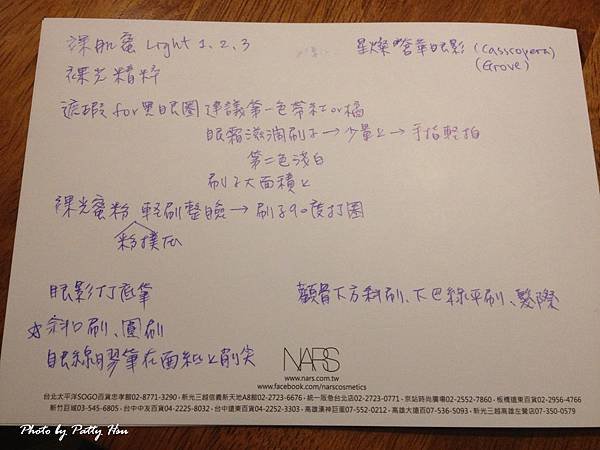 裸肌蜜 Light 1、2、3
星燦奢華眼影 (Cassiopeia)
(Grove)
裸光精粹
遮瑕 for 黑眼圈 建議第一色帶紅or橘
眼霜滋潤刷子→少量上→手指輕拍
第二色淺白
刷子大面積上
裸光蜜粉 輕刷整臉→刷子90度打圈
粉撲區
眼影打底筆
顴骨下方斜刷、下巴線平刷、髮際
☆斜口刷、圓刷
眼線膠筆在面紙上削尖
NARS
www.nars.com.tw
www.facebook.com/narscosmetics
台北太平洋SOGO百貨忠孝館02-8771-3290・新光三越信義新天地A8館02-2723-6676・統一阪急台北店02-2723-0771・京站時尚廣場02-2552-7860・板橋遠東百貨02-2956-4766
新竹巨城03-545-6805・台中中友百貨04-2225-8032・台中遠東百貨04-2252-3303・高雄漢神巨蛋07-552-0212・高雄大遠百07-536-5093・新光三越高雄左營店07-350-0579
Photo by Patty Hsu